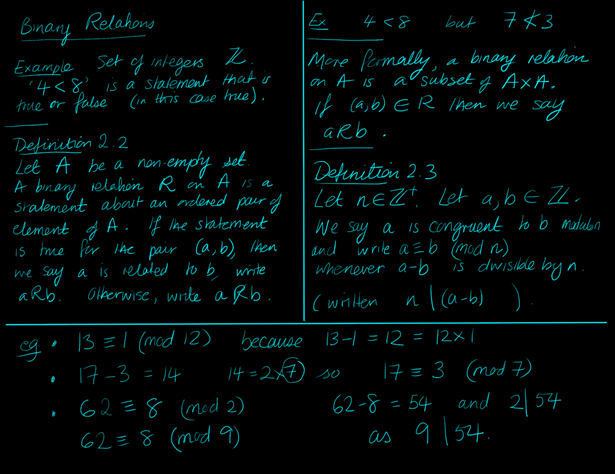 Binary Relations
Example Set of integers ℤ.
'4 < 8' is a statement that is
true or false (in this case true).
Definition 2.2
Let A be a non-empty set
A binary relation R on A is a
statement about an ordered pair of
element of A. If the statement
is true for the pair (a,b), then
we say a is related to b, write
aRb. Otherwise, write a R̸ b.
Ex 4 < 8 but 7 ≮ 3
More formally, a binary relation
on A is a subset of A×A.
if (a,b) ∈ R then we say
aRb.
Definition 2.3
Let n ∈ ℤ⁺. Let a, b ∈ ℤ.
We say a is congruent to b modulo n
and write a ≡ b (mod n)
whenever a-b is divisible by n.
(written n | (a-b) ).
eg • 13 ≡ 1 (mod 12) because 13-1 = 12 = 12×1
• 17-3 = 14 14 = 2×7 so 17 ≡ 3 (mod 7)
• 62 ≡ 8 (mod 2) 62-8 = 54 and 2|54
62 ≡ 8 (mod 9) as 9 | 54.